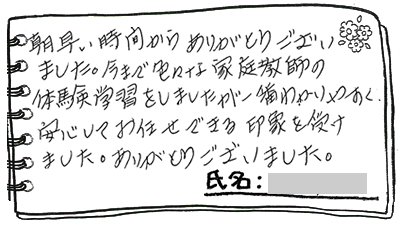 朝早い時間からありがとうござい
ました。今まで色々な家庭教師の
体験学習をしましたが一番わかりやすく、
安心してお任せできる印象を受け
ました。ありがとうございました。
氏名: